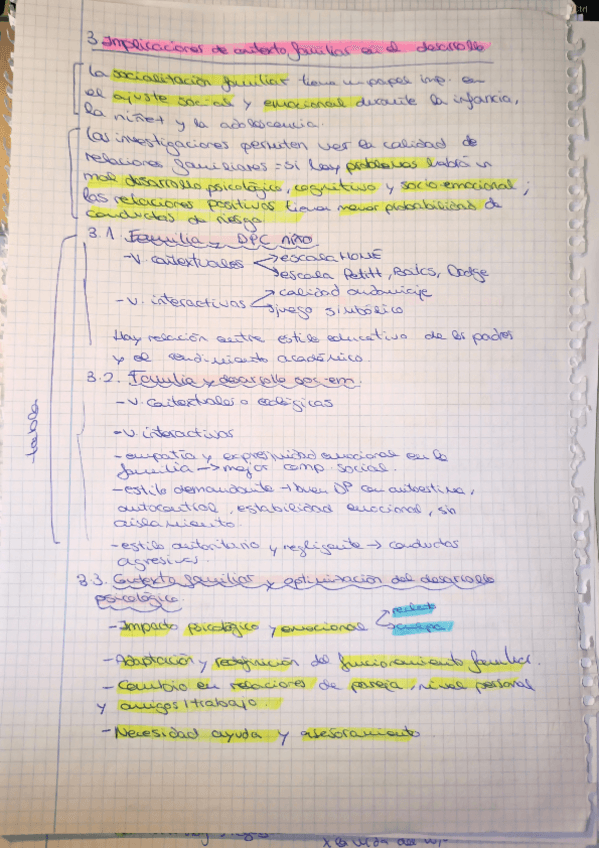 3 Implicaciones de contexto familiar en el desarrollo
La socialización familiar tiene un papel imp. en
el ajuste social y emocional durante la infancia,
la niñez y la adolescencia.
Las investigaciones permiten ver la calidad de
relaciones familiares = si hay problemas habrá un
mal desarrollo psicológico, cognitivo y socio-emocional;
las relaciones positivas tienen menor probabilidad de
conductas de riesgo
3.1. Familia y DPC niño
-V. contextuales → escala HOME
→ escala Pettit, Bates, Dodge
-V. interactivas → calidad andamiaje
→ juego simbólico
Hay relación entre estilo educativo de los padres
y el rendimiento académico.
3.2. Familia y desarrollo soc-em.
-V. contextuales o ecológicas
-V. interactivas
-empatía y expresividad emocional en la
familia → mejor comp. social.
-estilo demandante → buen DP con autoestima,
autocontrol, estabilidad emocional, sin
aislamiento.
-estilo autoritario y negligente → conductas
agresivas.
3.3. Contexto familiar y optimización del desarrollo
psicológico.
-Impacto psicológico y emocional → rechazo
→ culpa
-Adaptación y redefinición del funcionamiento familiar.
-Cambio en relaciones de pareja, nivel personal
y amigos/trabajo.
-Necesidad ayuda y asesoramiento